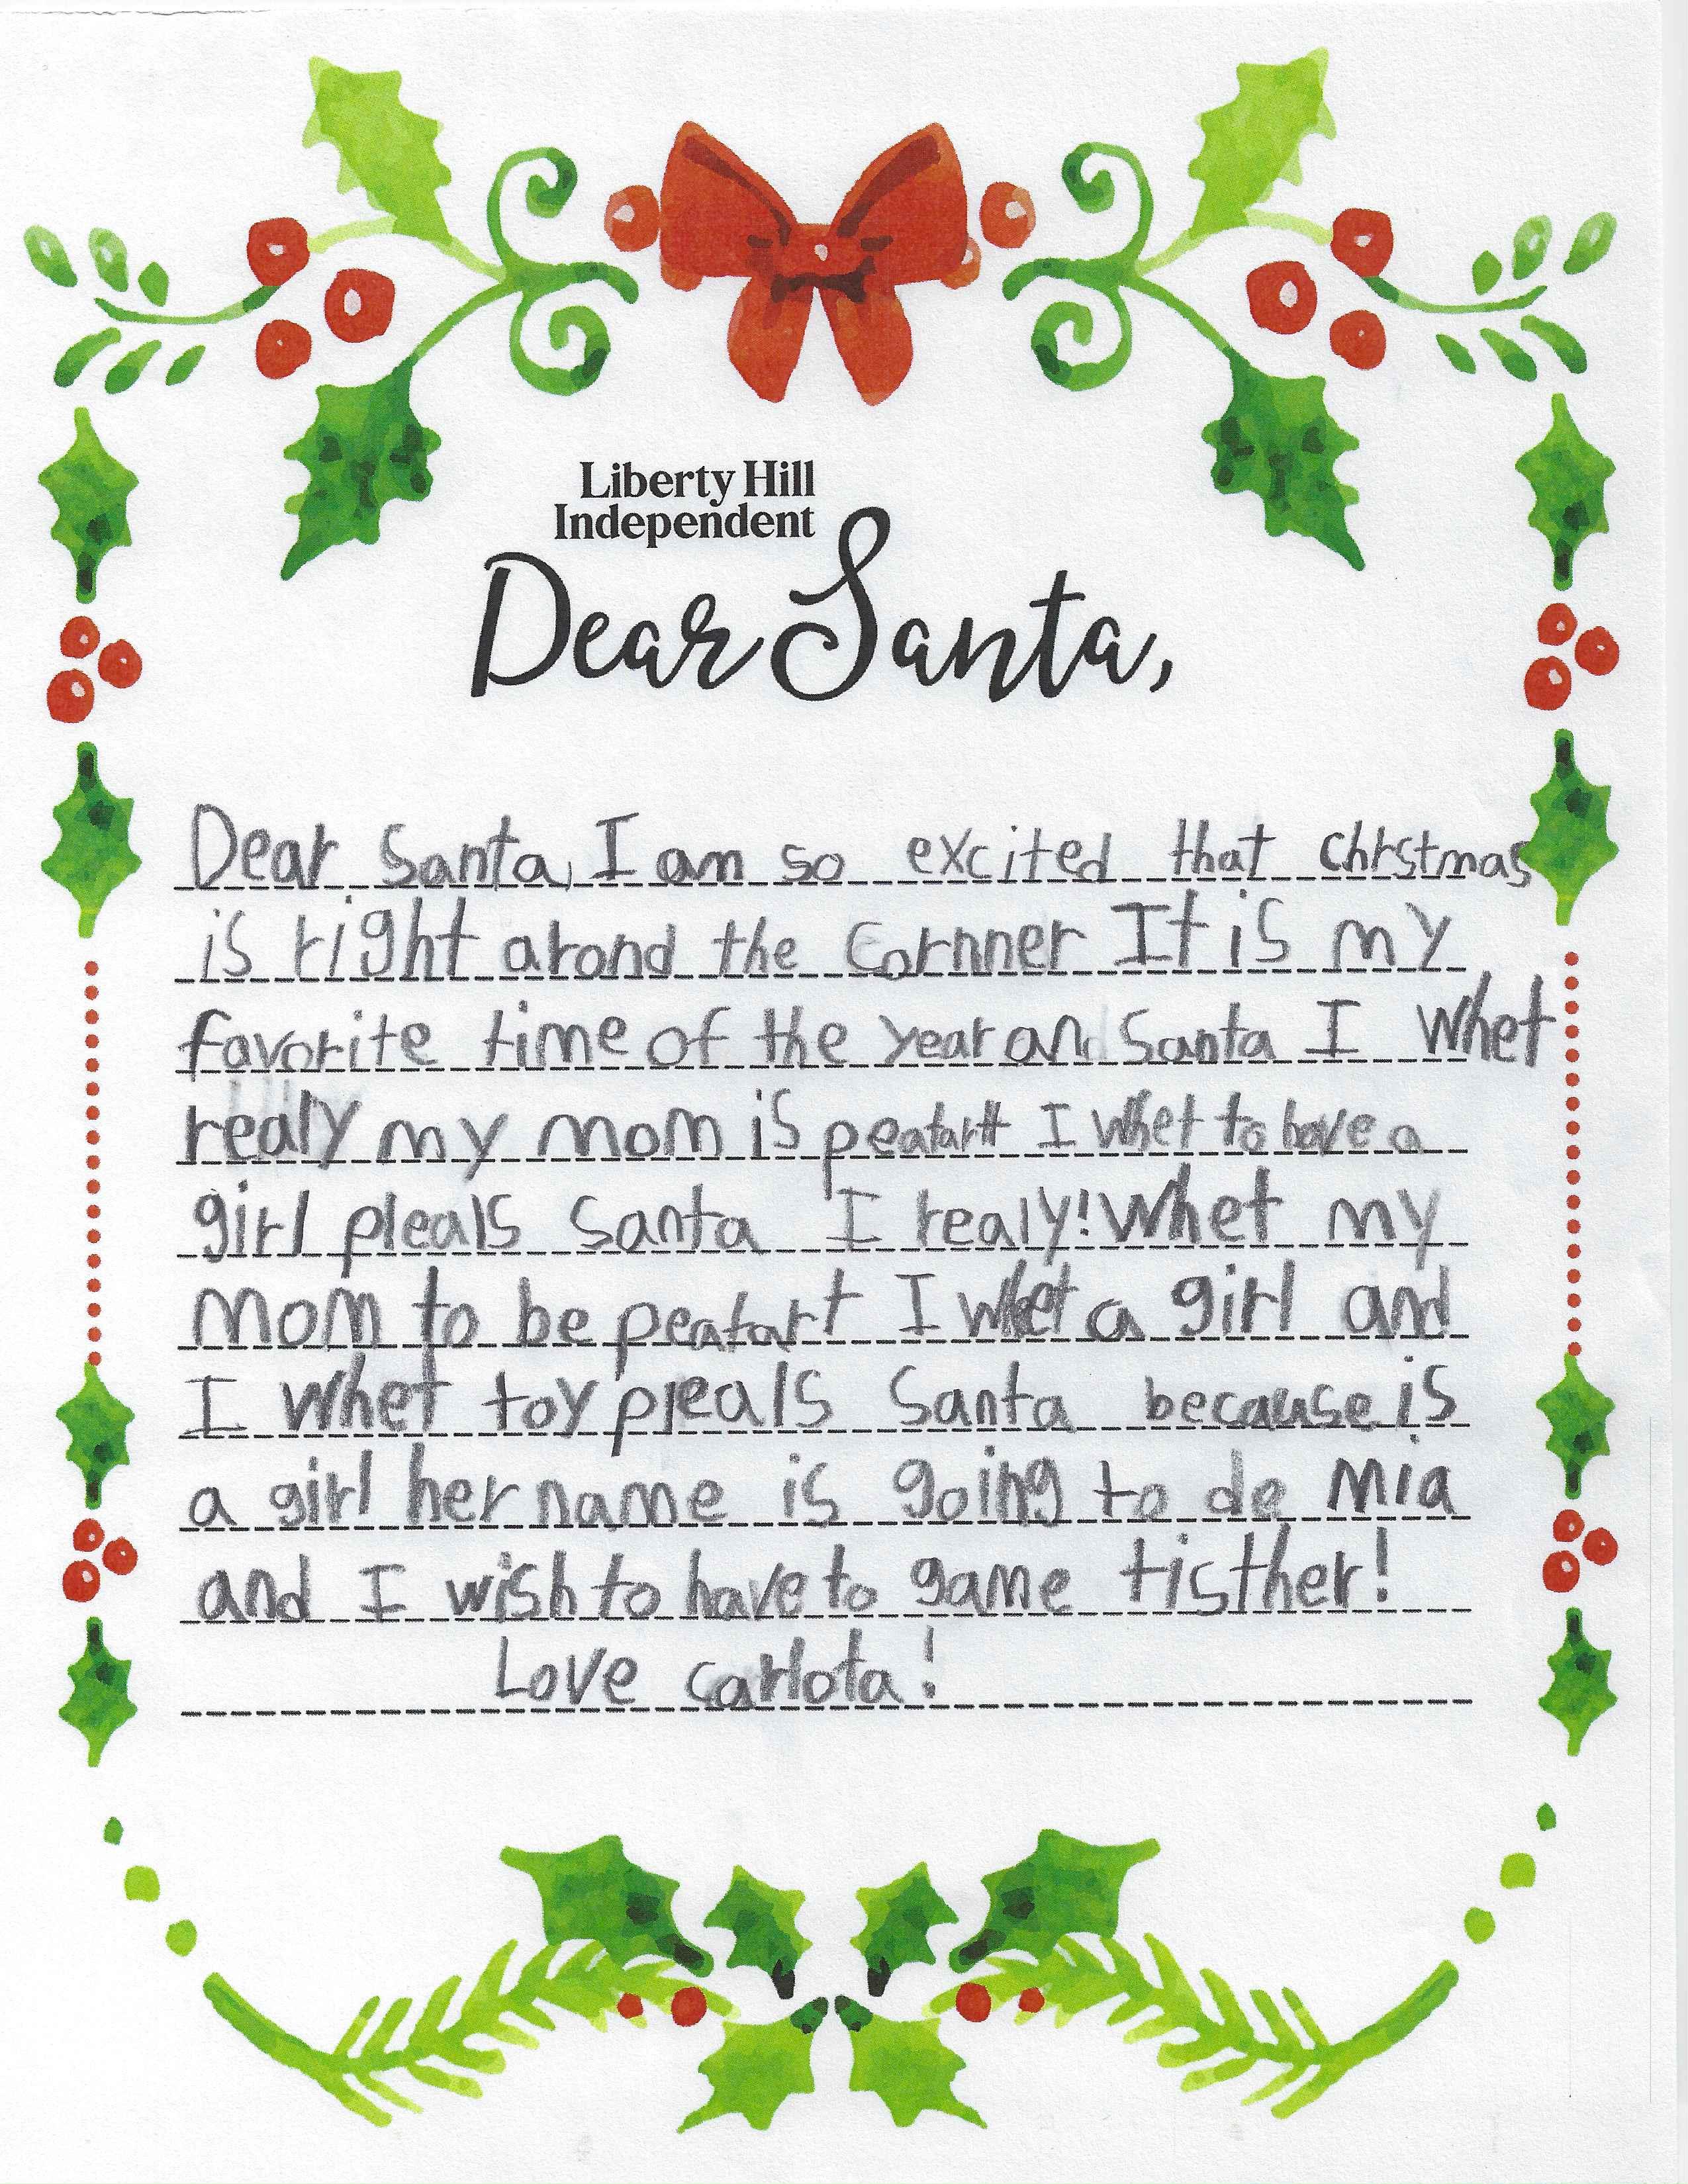 Liberty Hill
Independent
Dear Santa,
Dear Santa, I am so excited that chrstmas
is right arond the Cornner It is my
favorite time of the year and Santa I whet
realy my mom is peatartt I whet to have a
girl pleals Santa I realy! whet my
mom to be peatart I whet a girl and
I whet toy pleals Santa because is
a girl her name is going to de Mia
and I wish to have to game tisther!
Love carlota!